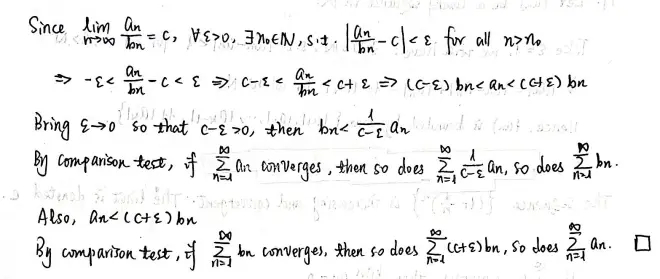 Since lim_{n→∞} an/bn = c, ∀ε>0, ∃n₀∈N, s.t. |an/bn - c| < ε. for all n>n₀
⇒ -ε < an/bn - c < ε ⇒ c-ε < an/bn < c+ε ⇒ (c-ε) bn < an < (c+ε) bn
Bring ε→0 so that c-ε>0, then bn < 1/(c-ε) an
By comparison test, if ∑_{n=1}^{∞} an converges, then so does ∑_{n=1}^{∞} 1/(c-ε) an, so does ∑_{n=1}^{∞} bn.
Also, an < (c+ε) bn
By comparison test, if ∑_{n=1}^{∞} bn converges, then so does ∑_{n=1}^{∞} (c+ε) bn, so does ∑_{n=1}^{∞} an. □